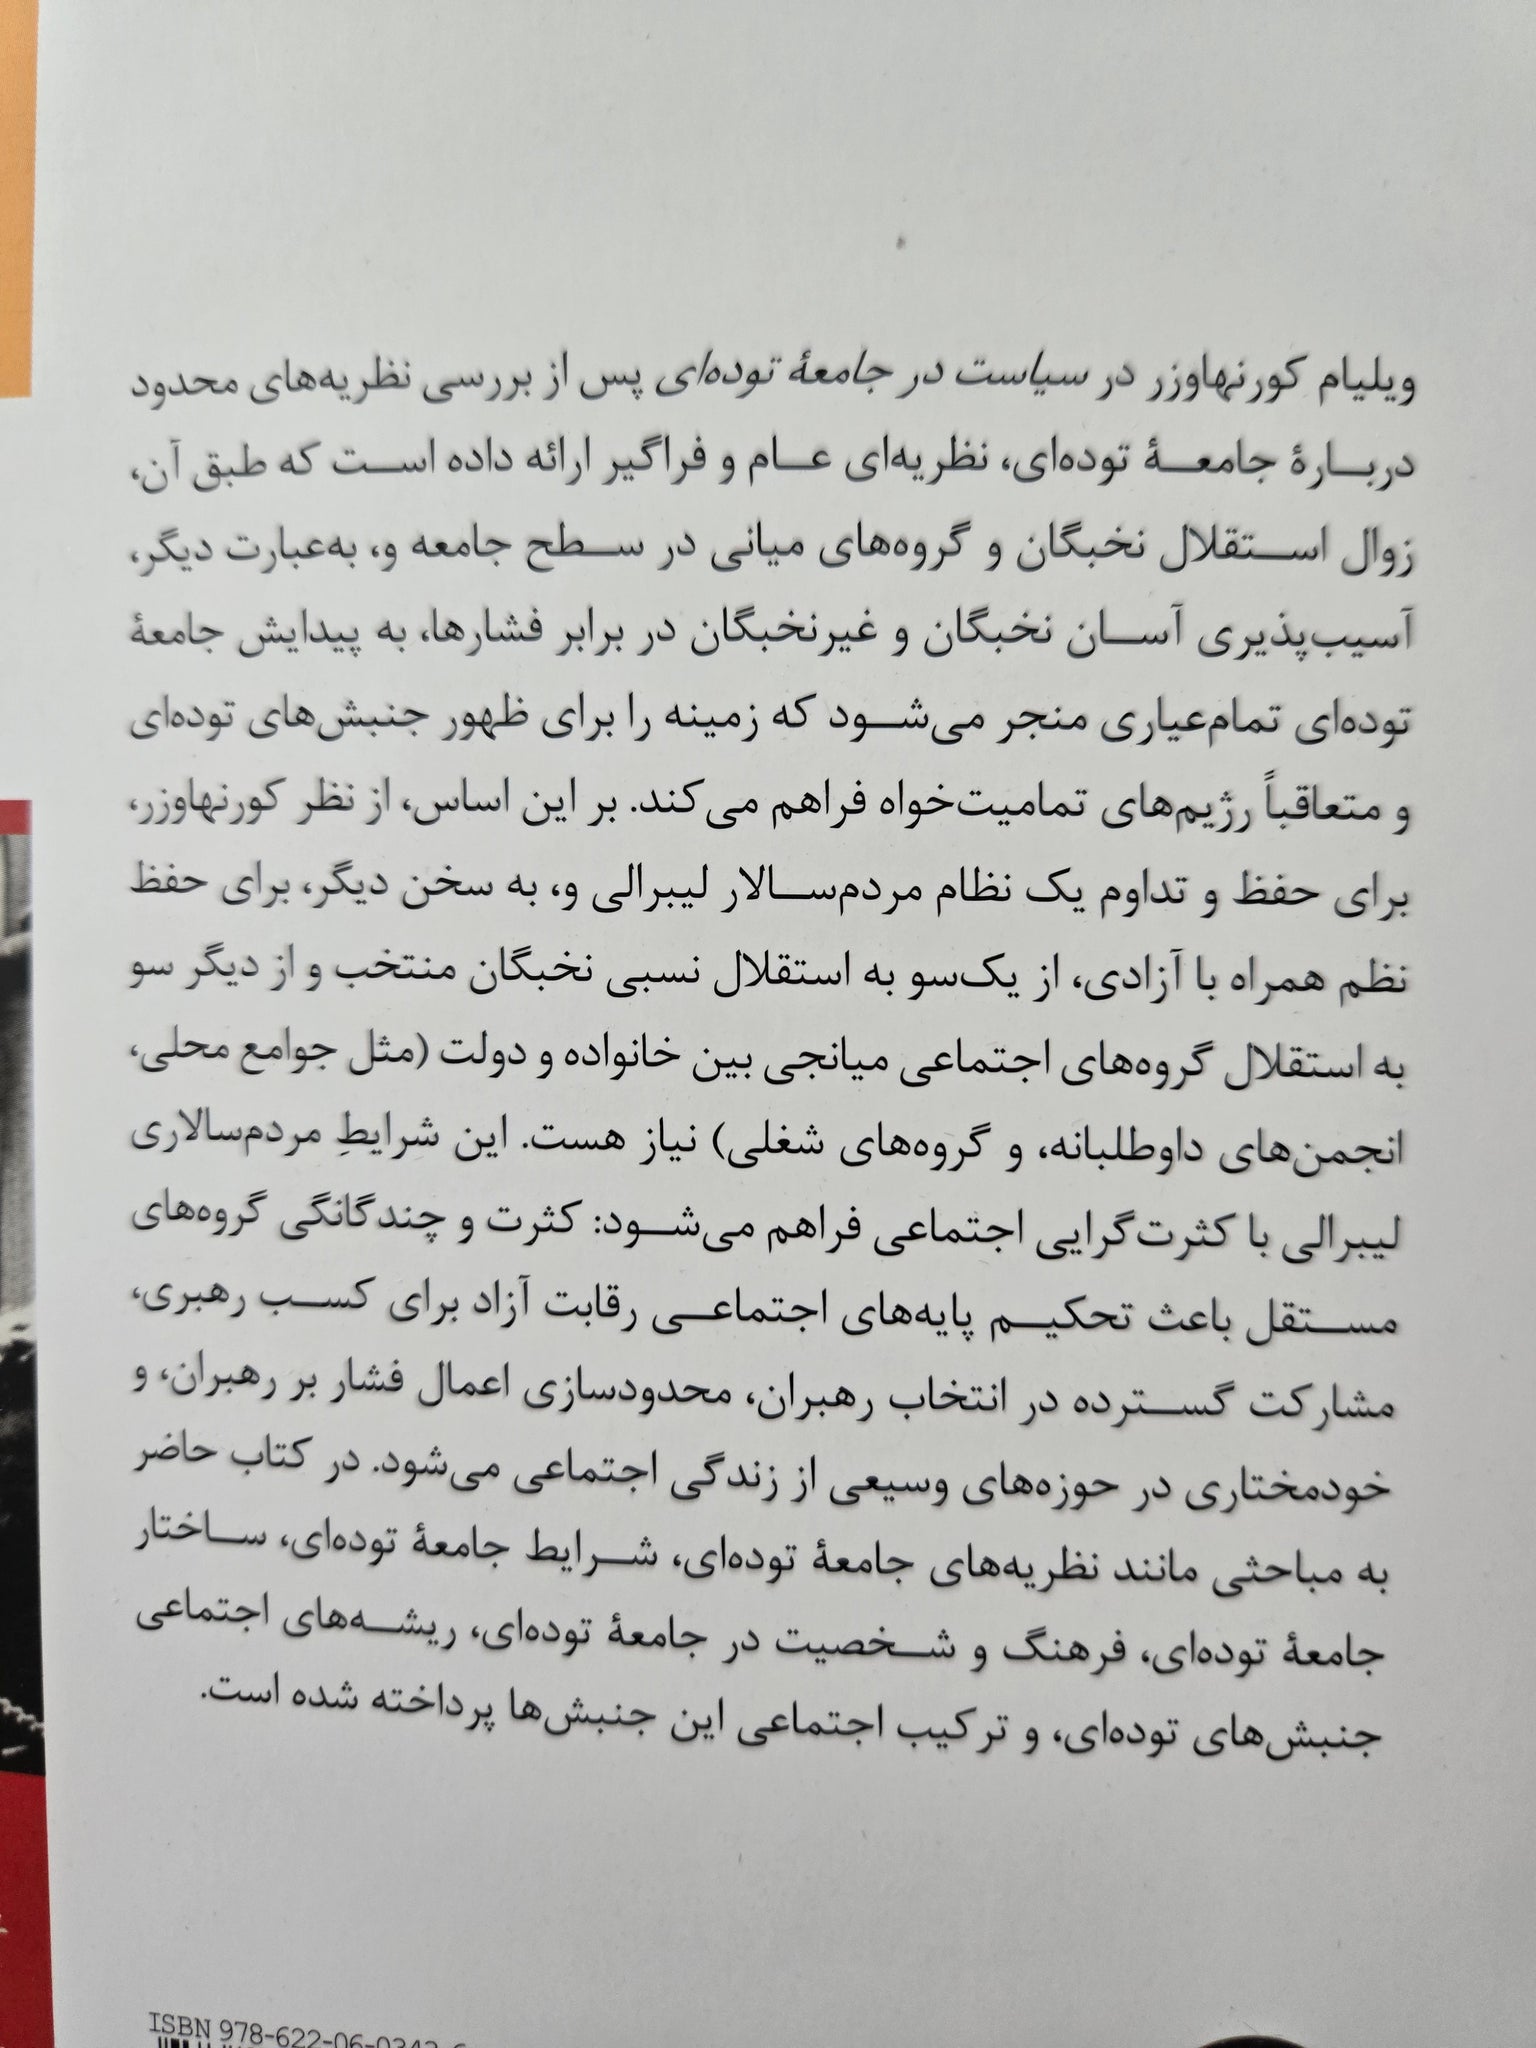 ویلیام کورنهاوزر در سیاست در جامعهٔ توده‌ای پس از بررسی نظریه‌های محدود
دربارهٔ جامعهٔ توده‌ای، نظریه‌ای عام و فراگیر ارائه داده است که طبق آن،
زوال استقلال نخبگان و گروه‌های میانی در سطح جامعه و، به‌عبارت دیگر،
آسیب‌پذیری آسان نخبگان و غیرنخبگان در برابر فشارها، به پیدایش جامعهٔ
توده‌ای تمام‌عیاری منجر می‌شود که زمینه را برای ظهور جنبش‌های توده‌ای
و متعاقباً رژیم‌های تمامیت‌خواه فراهم می‌کند. بر این اساس، از نظر کورنهاوزر،
برای حفظ و تداوم یک نظام مردم‌سالار لیبرالی و، به سخن دیگر، برای حفظ
نظم همراه با آزادی، از یک‌سو به استقلال نسبی نخبگان منتخب و از دیگر سو
به استقلال گروه‌های اجتماعی میانجی بین خانواده و دولت (مثل جوامع محلی،
انجمن‌های داوطلبانه، و گروه‌های شغلی) نیاز هست. این شرایطِ مردم‌سالاری
لیبرالی با کثرت‌گرایی اجتماعی فراهم می‌شود: کثرت و چندگانگی گروه‌های
مستقل باعث تحکیم پایه‌های اجتماعی رقابت آزاد برای کسب رهبری،
مشارکت گسترده در انتخاب رهبران، محدودسازی اعمال فشار بر رهبران، و
خودمختاری در حوزه‌های وسیعی از زندگی اجتماعی می‌شود. در کتاب حاضر
به مباحثی مانند نظریه‌های جامعهٔ توده‌ای، شرایط جامعهٔ توده‌ای، ساختار
جامعهٔ توده‌ای، فرهنگ و شخصیت در جامعهٔ توده‌ای، ریشه‌های اجتماعی
جنبش‌های توده‌ای، و ترکیب اجتماعی این جنبش‌ها پرداخته شده است.
ISBN 978-622-06-0342-6